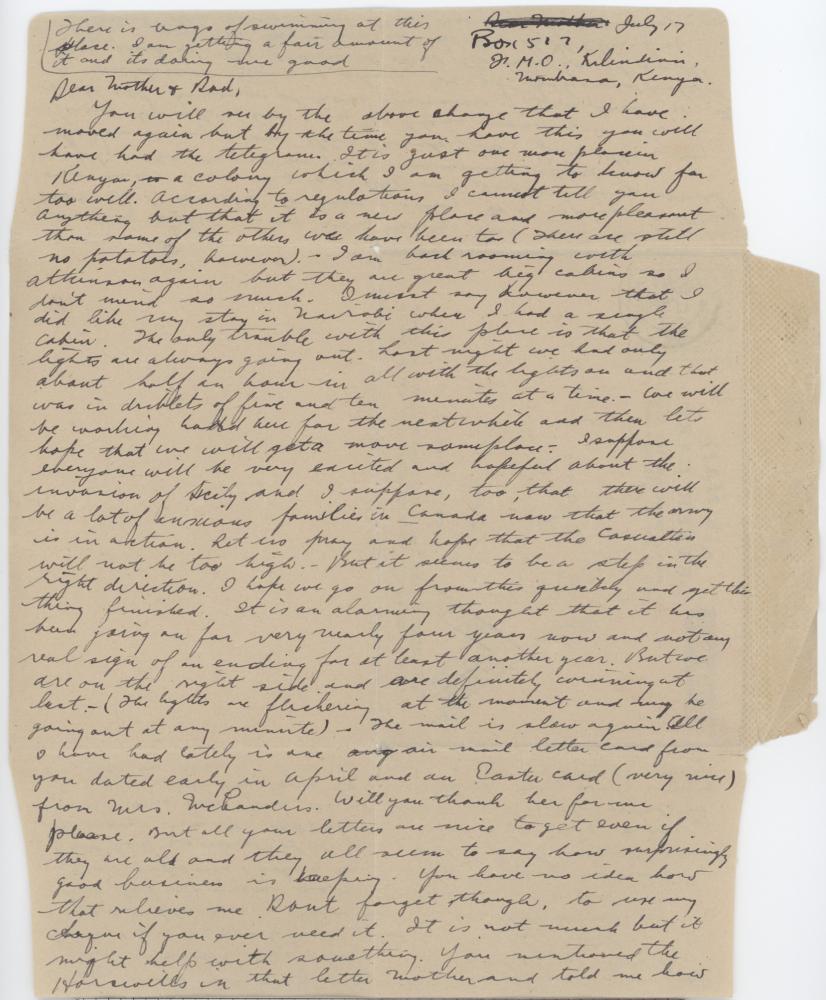 There is wags of swimming at this
place. I am getting a fair amount of
it and its doing me good
Dear Mother July 17
Box 517,
F.M.O., Kilindini,
Mombasa, Kenya.
Dear Mother & Dad,
You will see by the above change that I have
moved again but by the time you have this you will
have had the telegram. It is just one more place in
Kenya, a colony which I am getting to know far
too well. According to regulations I cannot tell you
anything but that it is a new place and more pleasant
than some of the others we have been to (There are still
no potatoes, however). - I am back rooming with
Atkinson again but they are great big cabins so I
don't mind so much. I must say however that I
did like my stay in Nairobi when I had a single
cabin. The only trouble with this place is that the
lights are always going out. Last night we had only
about half an hour in all with the lights on and that
was in driblets of five and ten minutes at a time. - We will
be working hard here for the next while and then lets
hope that we will get a move someplace - I suppose
everyone will be very excited and hopeful about the
invasion of Sicily and I suppose, too, that there will
be a lot of anxious families in Canada now that the army
is in action. Let us pray and hope that the casualties
will not be too high. - But it seems to be a step in the
right direction. I hope we go on from this quickly and get this
thing finished. It is an alarming thought that it has
been going on for very nearly four years now and not any
real sign of an ending for at least another year. But we
are on the right side and are definitely winning at
last. - (The lights are flickering at the moment and may be
going out at any minute) - The mail is slow again. All
I have had lately is one air mail letter card from
you dated early in April and an Easter card (very nice)
from Mrs. Will you thank her for me
please. But all your letters are nice to get even if
they are old and they all seem to say how surprisingly
good business is keeping. You have no idea how
that relieves me. Dont forget, though, to use my
cheque if you ever need it. It is not much but it
might help with something. You mentioned the
Horswills in that letter Mother and told me how